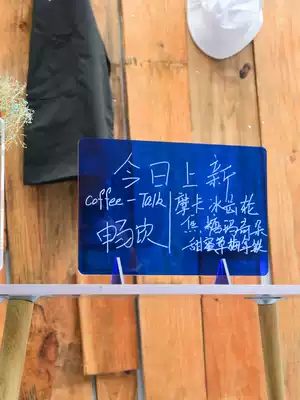 今日上新
coffee-Talk
畅饮
摩卡 冰
焦糖玛奇朵
甜蜜草莓